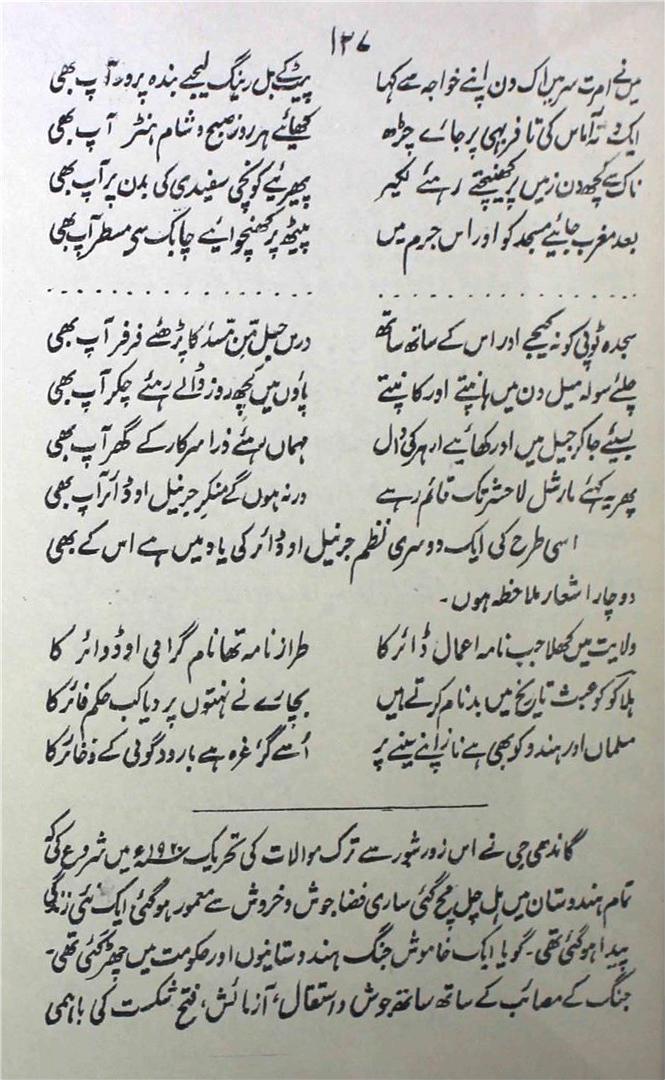 ۱۲۷
میں نے امرت سر میں اک دن اپنے خواجہ سے کہا پیٹ کے بل رینگ لیجے بندہ پرور آپ بھی
ایک دستہ آماس کی تا فربہی پر جائے چڑھ کھائیے ہر روز صبح و شام ہنٹر آپ بھی
ناک سے کچھ دن زمیں پر کھینچتے رہئے لکیر پھیرئیے کونچی سفیدی کی بدن پر آپ بھی
بعد مغرب جائیے مسجد کو اور اس جرم میں پیٹھ پر کھنچوائیے چابک سی مسطر آپ بھی
سجدہ ٹوپی کو نہ کیجے اور اس کے ساتھ ساتھ درس حبل مّن مّسدْ کا پڑھئے فرفر آپ بھی
چلئے سولہ میل دن میں ہانپتے اور کانپتے پاؤں میں کچھ روز ڈالے رہئے چکر آپ بھی
بسئیے جا کر جیل میں اور کھائیے ارہر کی دال مہماں رہئے ذرا سرکار کے گھر آپ بھی
پھر یہ کہئے مارشل لا حشر تک قائم رہے ورنہ ہوں گے منکر جرنیل اوڈائر آپ بھی
اسی طرح کی ایک دوسری نظم جرنیل اوڈائر کی یاد میں ہے اس کے بھی
دو چار اشعار ملاحظہ ہوں۔
ولایت میں کھلا جب نامہ اعمال ڈائر کا طراز نامہ تھا نام گرامی اوڈوائر کا
ہلاکو کو عبث تاریخ میں بدنام کرتے ہیں بچارے نے نہتوں پر دیا کب حکم فائر کا
مسلماں اور ہندو کو بھی ہے ناز اپنے سینے پر اُسے گر غرہ ہے بارود گولی کے ذخائر کا
گاندھی جی نے اس زور شور سے ترک موالات کی تحریک ۱۹۲۰ء میں شروع کی کہ
تمام ہندوستان میں ہل چل مچ گئی ساری فضا جوش و خروش سے معمور ہو گئی ایک نئی زندگی
پیدا ہو گئی تھی۔ گویا ایک خاموش جنگ ہندوستانیوں اور حکومت میں چھڑ گئی تھی۔
جنگ کے مصائب کے ساتھ ساتھ جوش و استقلال، آزمائش، فتح شکست کی باہمی